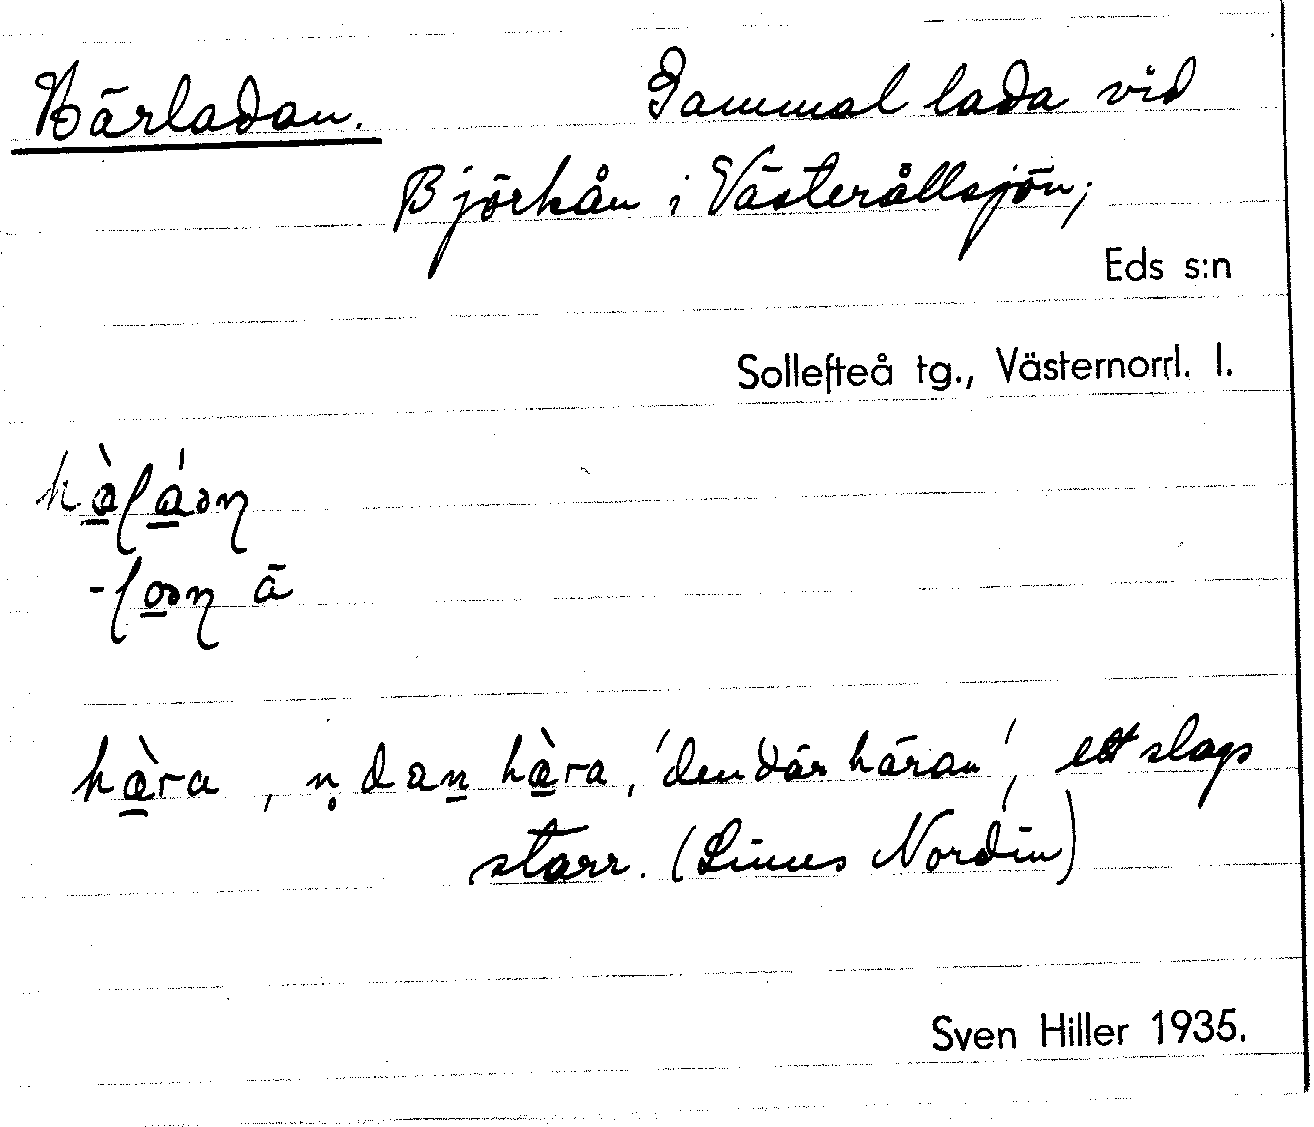 Härladan. Gammal lada vid
Björkån i Västerållsjön;
Eds s:n
Sollefteå tg., Västernorrl. l.
hàra, n̥ dan hàra, 'den där häran', ett slags
starr. (Linus Nordin)
Sven Hiller 1935.